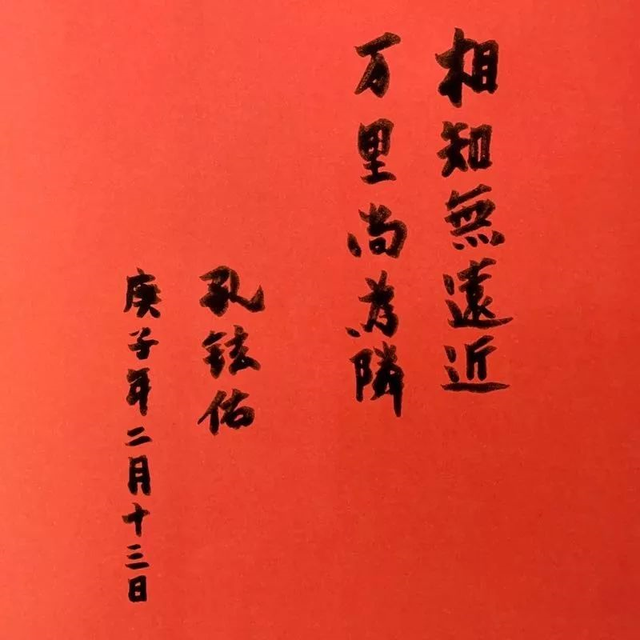 相知無遠近
万里尚為隣
孔鉉佑
庚子年二月十三日